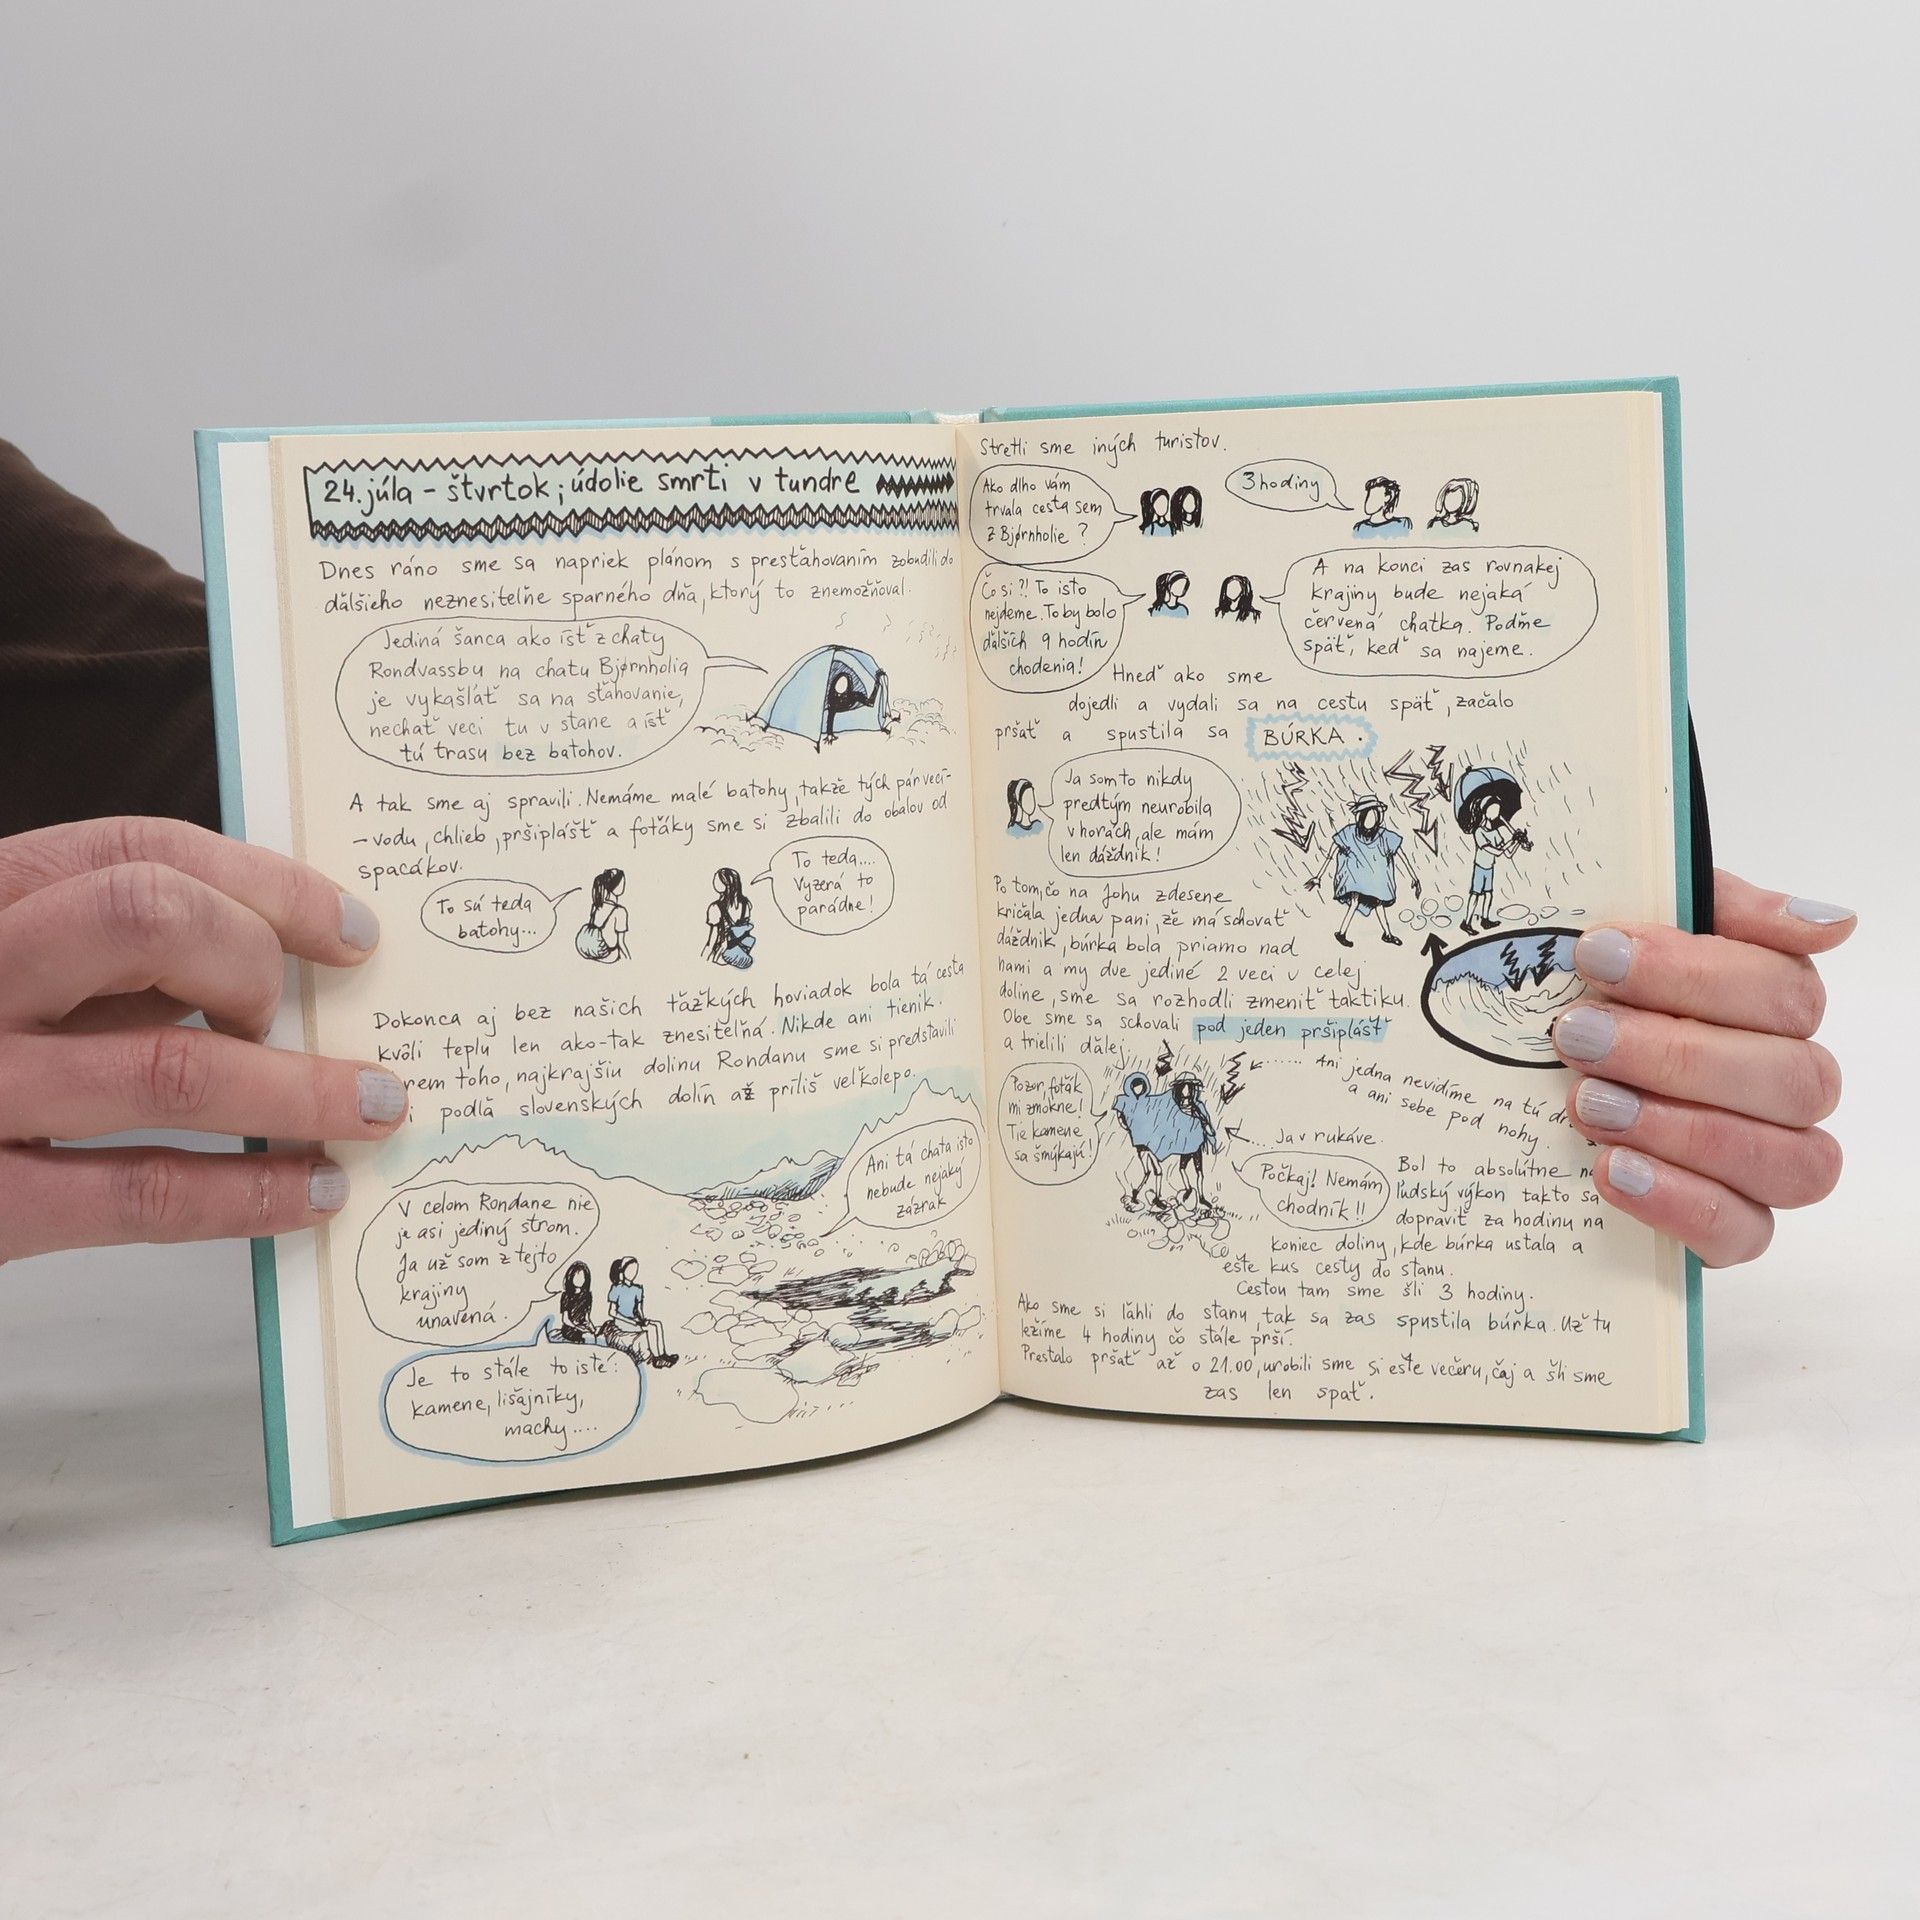 24. júla - štvrtok ; údolie smrti v tundre
Dnes ráno sme sa napriek plánom s presťahovaním zobudili do
ďalšieho neznesiteľne sparného dňa, ktorý to znemožňoval.
Jediná šanca ako ísť z chaty
Rondvassbu na chatu Bjørnholia
je vykašlať sa na sťahovanie,
nechať veci tu v stane a ísť
tú trasu bez batohov.
A tak sme aj spravili. Nemáme malé batohy, takže tých pár vecí -
- vodu, chlieb, pršiplášť a foťáky sme si zbalili do obalov od
spacákov.
To sú teda
batohy...
To teda....
Vyzerá to
parádne!
Dokonca aj bez našich ťažkých hoviadok bola tá cesta
kvôli teplu len ako-tak znesiteľná. Nikde ani tienik.
rem toho, najkrajšiu dolinu Rondanu sme si predstavili
i podľa slovenských dolín až príliš veľkolepo.
Ani tá chata isto
nebude nejaký
zázrak
V celom Rondane nie
je asi jediný strom.
Ja už som z tejto
krajiny
unavená.
Je to stále to isté:
kamene, lišajníky,
machy....
Stretli sme iných turistov.
Ako dlho vám
trvala cesta sem
z Bjørnholie ?
3 hodiny
Čo si?! To isto
nejdeme. To by bolo
ďalších 9 hodín
chodenia!
A na konci zas rovnakej
krajiny bude nejaká
červená chatka. Poďme
späť, keď sa najeme.
Hneď ako sme
dojedli a vydali sa na cestu späť, začalo
pršať a spustila sa BÚRKA.
Ja som to nikdy
predtým neurobila
v horách, ale mám
len dáždnik!
Po tom, čo na Johu zdesene
kričala jedna pani, že má schovať
dáždnik, búrka bola priamo nad
nami a my dve jediné 2 veci v celej
doline, sme sa rozhodli zmeniť taktiku.
Obe sme sa schovali pod jeden pršiplášť
a trielili ďalej.
Ani jedna nevidíme na tú
a ani sebe pod nohy.
Pozor, foťák
mi zmokne!
Tie kamene
sa šmýkajú!
Ja v rukáve.
Počkaj! Nemám
chodník!!
Bol to absolútne
ľudský výkon takto sa
dopraviť za hodinu na
koniec doliny, kde búrka ustala a
ešte kus cesty do stanu.
Cestou tam sme šli 3 hodiny.
Ako sme si ľahli do stanu, tak sa zas spustila búrka. Už tu
ležíme 4 hodiny čo stále prší.
Prestalo pršať až o 21.00, urobili sme si ešte večeru, čaj a šli sme
zas len spať.